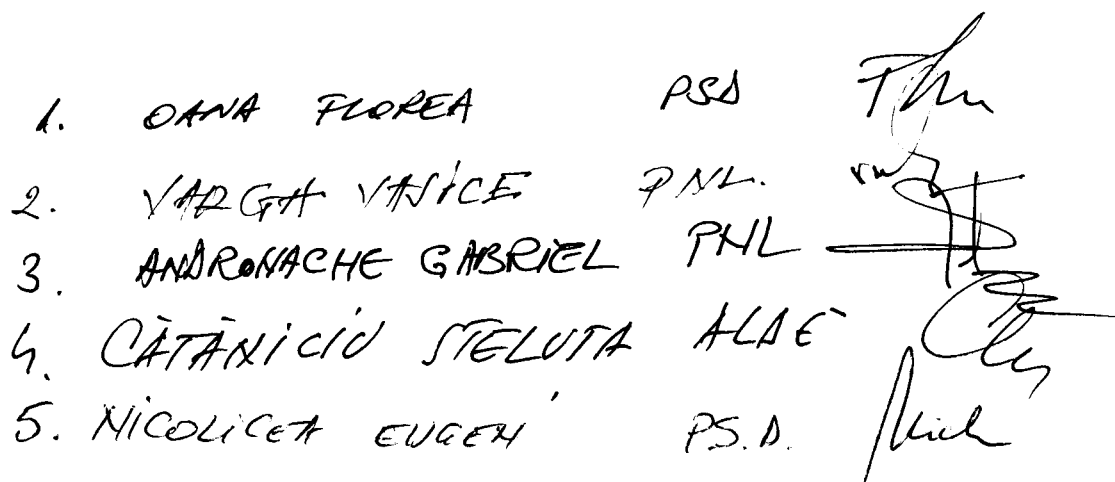 1. OANA FLOREA PSD
2. VARGA VASILE PNL.
3. ANDRONACHE GABRIEL PNL
4. CĂTĂNICIU STELUTA ALDE
5. NICOLICEA EUGEN P.S.D.